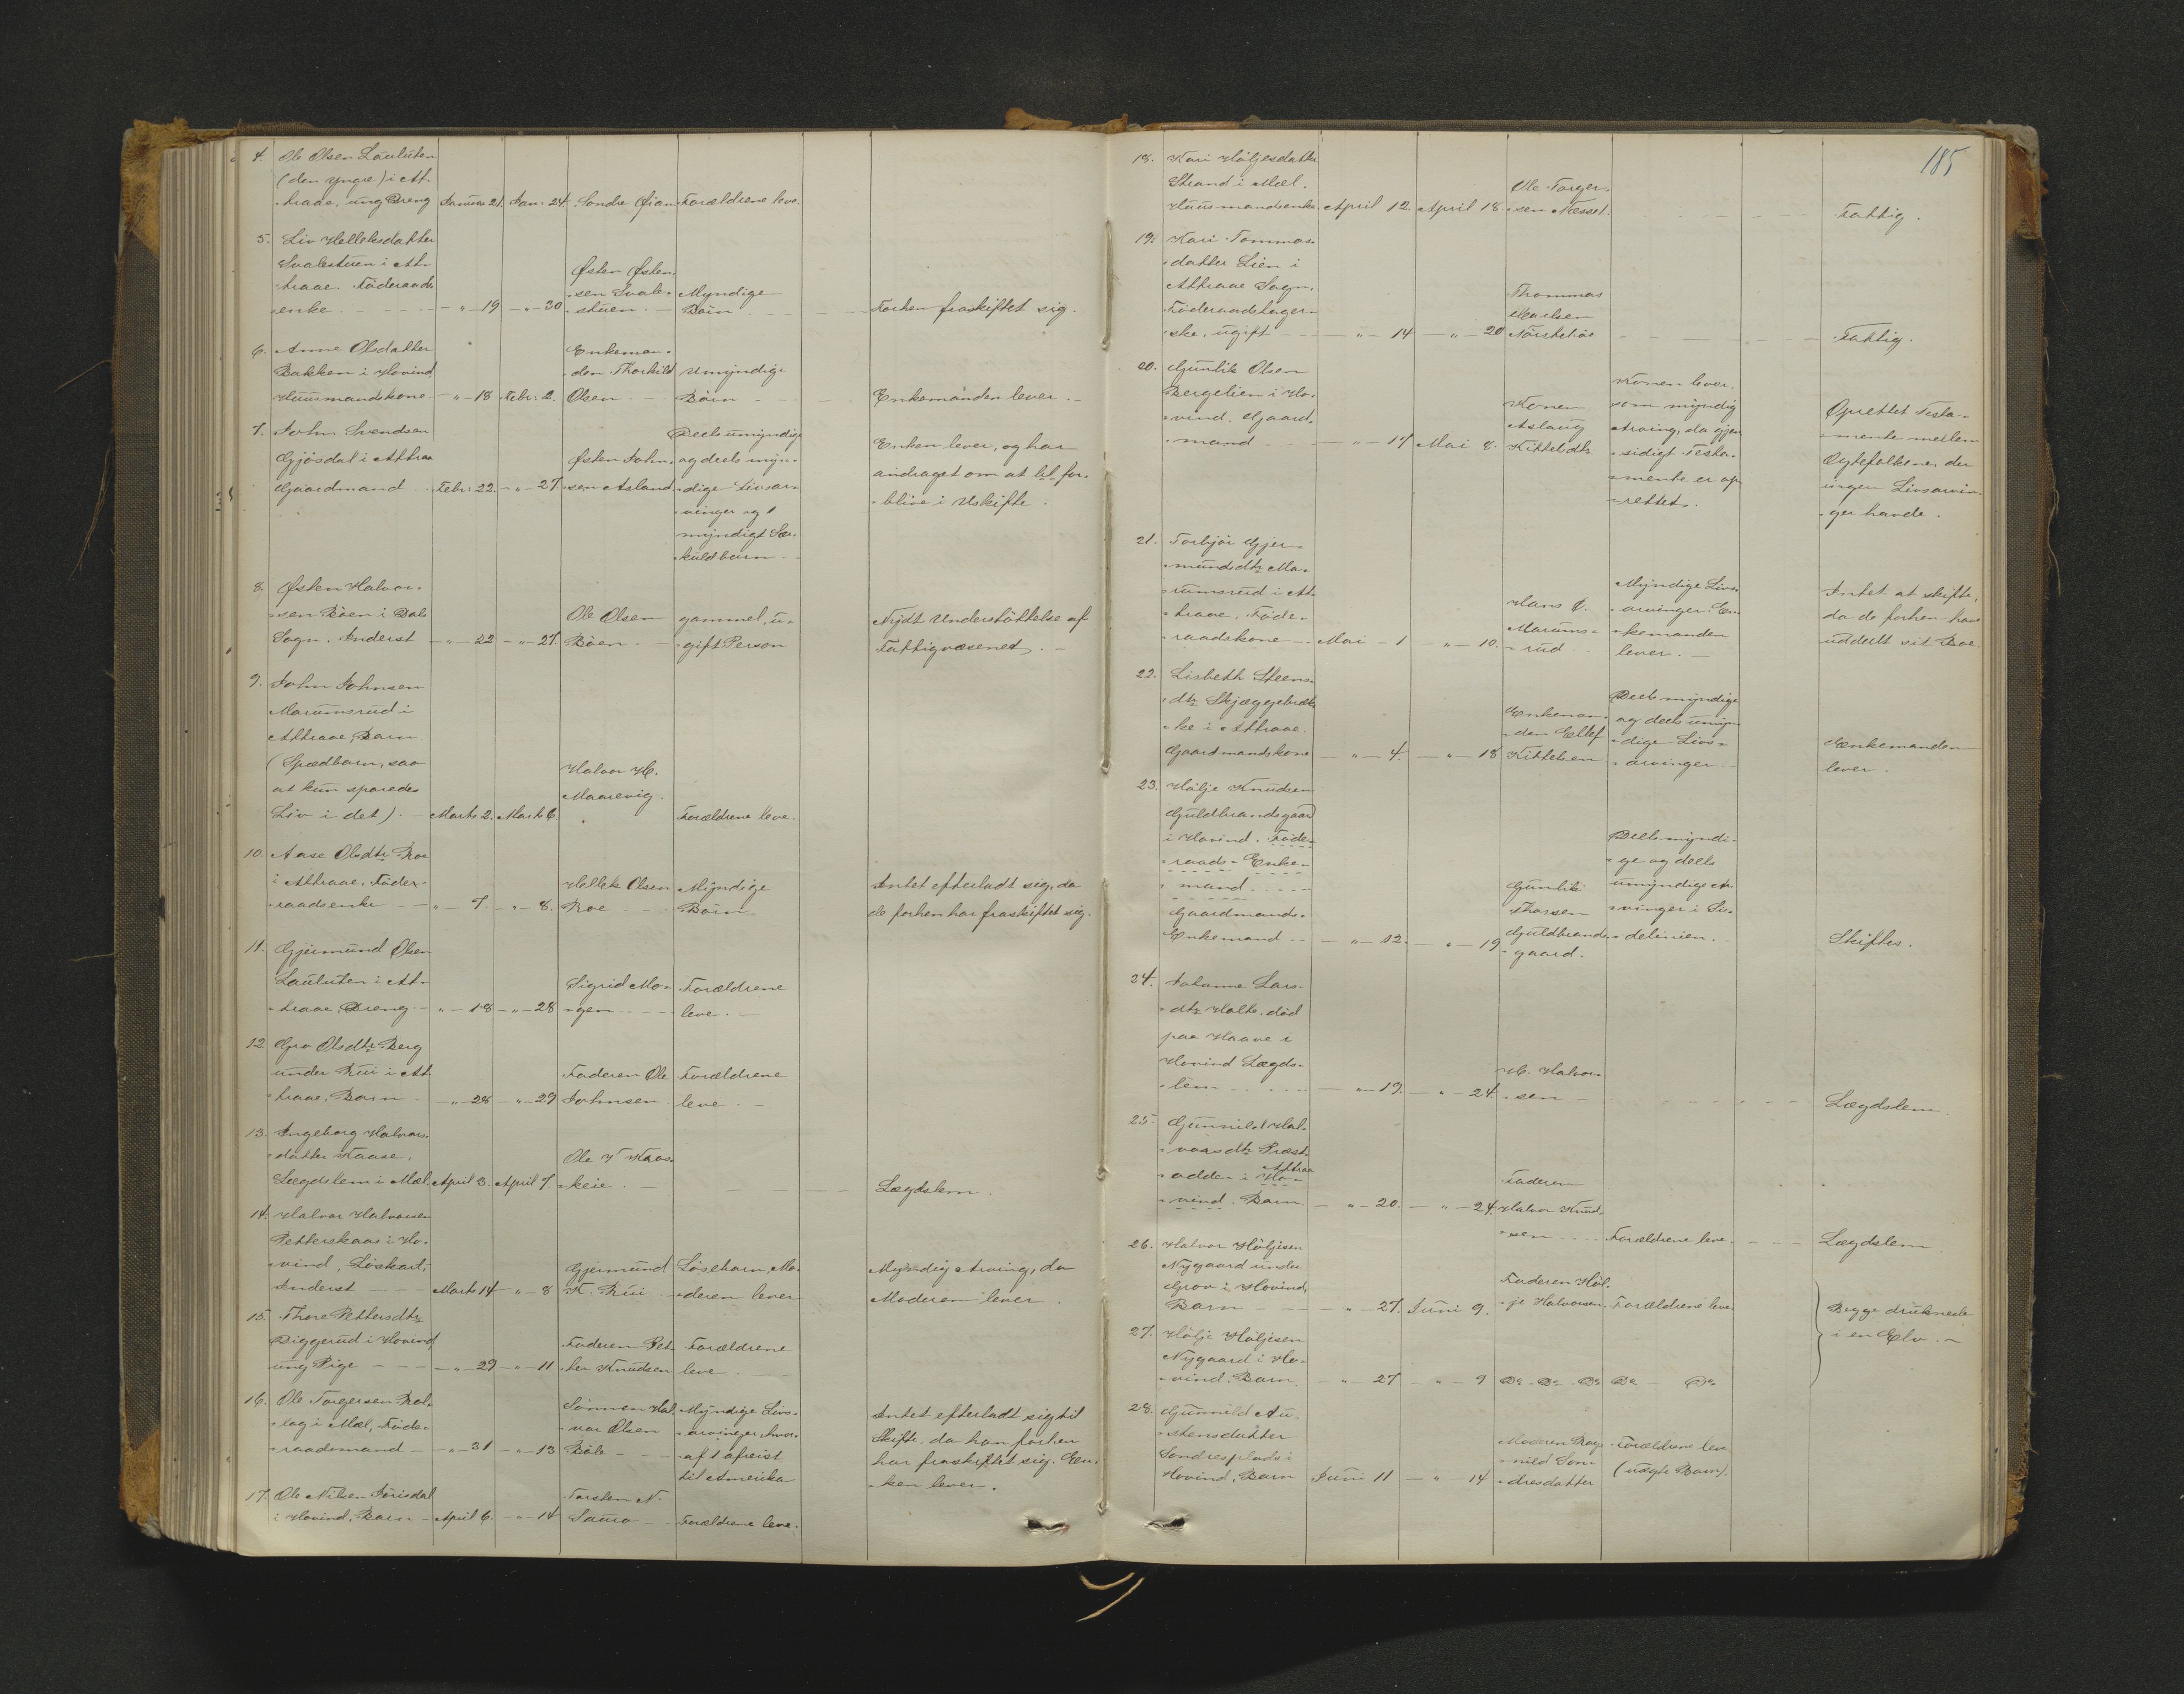 4. Ole Olsen Lauluten
(den yngre) i At-
traae, ung Dreng Januar 21. Jan: 24. Sondre Øian Forældrene leve.
5. Liv Helleksdatter
Svalestuen i At-
traae. Föderaads
enke - „ - 19 - „ - 30 Østen Østen-
sen Svale-
stuen. - Myndige
Börn Forhen fraskiftet sig.
6. Anne Olsdatter
Bakken i Hovind,
Huusmandskone - „ - 18 Febr: 2. Enkeman-
den Thorkild
Olsen Umyndige
Börn Enkemanden lever. -
7. John Svendsen
Gjösdal i Attraa
Gaardmand Febr: 22. - „ - 27. Østen John-
sen Asland Deels umyndige
og deels myn-
dige Livsar-
vinger og 1
myndigt Sær-
kuldbarn Enken lever, og har
andraget om at bli for-
blive i Uskifte.
8. Østen Halvor-
sen Böen i Dals
Sogn. Inderst - „ - 22 - „ - 27. Ole Olsen
Böen. - gammel, u-
gift Person Nydt Understöttelse af
Fattigvæsenet. -
9. John Johnsen
Marumsrud i
Attraae, Barn
(Spædbarn, saa
at kun sparedes
Liv i det). - Marts 2. Marts 6. Halvor H.
Maarevig. Forældrene leve.
10. Aase Olsdtr Roe
i Attraae, Föder-
raadsenke - „ - 7. - „ - 8. Hellek Olsen
Roe Myndige
Börn Intet efterladt sig, da
de forhen har fraskiftet sig.
11. Gjermund Olsen
Lauluten i At-
traae, Dreng - „ - 18 - „ - 28 Sigrid Mo-
gen Forældrene
leve. -
12. Gro Olsdtr Berg
under Rui i At-
traae, Barn - „ - 28 - „ - 29 Faderen Ole
Johnsen Forældrene
leve. -
13. Ingeborg Halvors-
datter Kaase,
Lægdslem i Mæl. April 3. April 7 Ole T Kaas-
keie. - Lægdslem.
14. Halvor Halvorsen
Petterskaas i Ho-
vind, Löskarl,
Inderst Marts 14 - „ - 8 Gjermund
K. Rui Lösebarn, Mo-
deren lever Myndig Arving, da
Moderen lever.
15. Thore Pettersdtr
Diggerud i Hovind,
ung Pige - „ - 29 - „ - 11 Faderen Pet-
ter Knudsen Forældrene
leve. -
16. Ole Torgersen Bol-
lag i Mæl, Föde-
raadsmand - „ - 31 - „ - 13 Sönnen Hal-
vor Olsen
Böle Myndige Livs-
arvinger, hvor-
af 1 afreist
til Amerika Intet efterladt sig til
Skifte, da han forhen
har fraskiftet sig. En-
ken lever.
17. Ole Nilsen Jörisdal
i Hovind, Barn April 6. - „ - 14 Torsten N.
Saura Forældrene leve.
185
18. Kari Höljesdatter
Strand i Mæl.
Huusmandsenke. April 12. April 18. Ole Torger-
sen Næsset. Fattig.
19. Kari Tommas-
datter Lien i
Attraae Sogn,
Föderaadstager-
ske, ugift - „ - 14 - „ - 20 Thommas
Nörsteböe Fattig.
20. Gunlik Olsen
Bergelien i Ho-
vind. Gaard-
mand - „ - 17 Mai 8. Konen
Aslaug
Kitteldtr Konen lever,
som myndig
Arving, da gjen-
sidigt Testa-
mente er op-
rettet. Oprettet Testa-
mente mellem
Ægtefolkene, der
ingen Livsarvin-
ger havde.
21. Torbjör Gjer-
mundsdtr Ma-
rumsrud i At-
traae, Föde-
raadskone Mai - 1 - „ - 10. Hans O.
Marums-
rud Myndige Livs-
arvinger. En-
kemanden
lever. - Intet at skifte,
da de forhen have
uddeelt sit Boe.
22. Lisbeth Steens-
dtr Skjæggebræk-
ke i Attraae.
Gaardmandskone - „ - 4. - „ - 18 Enkeman-
den Ellef
Kittelsen Deels myndige
og deels umyn-
dige Livs-
arvinger. Enkemanden
lever.
23. Hölje Knudsen
Guldbrandsgaard
i Hovind. Föde-
raads-Enke-
mand
Gaardmands-
Enkemand - „ - 12. - „ - 19 Gunlik
Thorsen
Guldbrands-
gaard. Deels myndi-
ge og deels
umyndige Ar-
vinger i Si-
delinien. Skiftes.
24. Johanne Lars-
dtr Holte, död
paa Haave i
Hovind Lægds-
lem - „ - 19. - „ - 24. H. Halvor-
sen Lægdslem.
25. Gunnild Hal-
vorsdtr Præst-
odden i Ho-
Attraa
vind. Barn. - „ - 20. - „ - 24. Faderen
Halvor Knud-
sen Forældrene leve. Lægdslem
26. Halvor Höljesen
Nygaard under
Grov i Hovind,
Barn - „ - 27. Juni 9. Faderen Höl-
je Halvorsen. Forældrene leve Begge druknede
i en Elv. -
27. Hölje Höljesen
Nygaard i Ho-
vind. Barn. - „ - 27 - „ - 9 Do - Do - Do Do - Do
28. Gunnild Au-
stensdatter
Sondresplads i
Hovind, Barn Juni 11 - „ - 14 Moderen Rag-
nild Son-
dresdatter Forældrene leve
(uægte Barn).